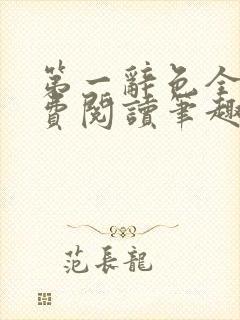 第一辭色全
費閱讀筆趣
范長龍